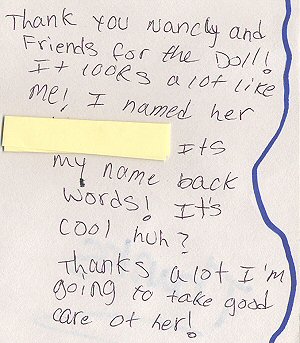 Thank you Nancy and
Friends for the Doll!
It looks a lot like
me! I named her
Its
my name back
words! It's
cool huh?
Thanks a lot I'm
going to take good
care of her!